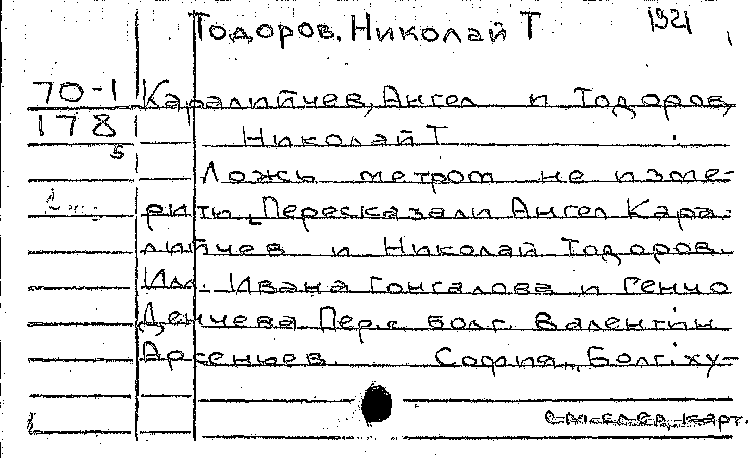 Тодоров, Николай Т 1921
70-1 Каралийчев, Ангел и Тодоров,
178 Николай Т.
5
Ложь метром не изме-
рить. Пересказали Ангел Кара-
лийчев и Николай Тодоров.
Илл. Ивана Гонгалова и Генчо
Денчева Пер. с болг. Валентин
Арсеньев. София, Болг. ху-
См. след. карт.